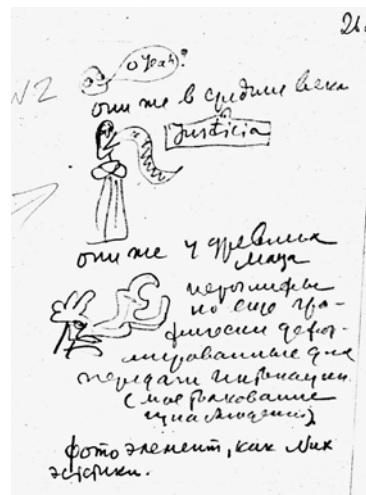 26.
o Yeah?
N2
они же в средние века
Justicia
они же у древних
Мауа
иероглифы
но еще гра-
фически дефор-
мированные для
передачи интонации
(мое толкование
)
фото элемент, как
эстетики.